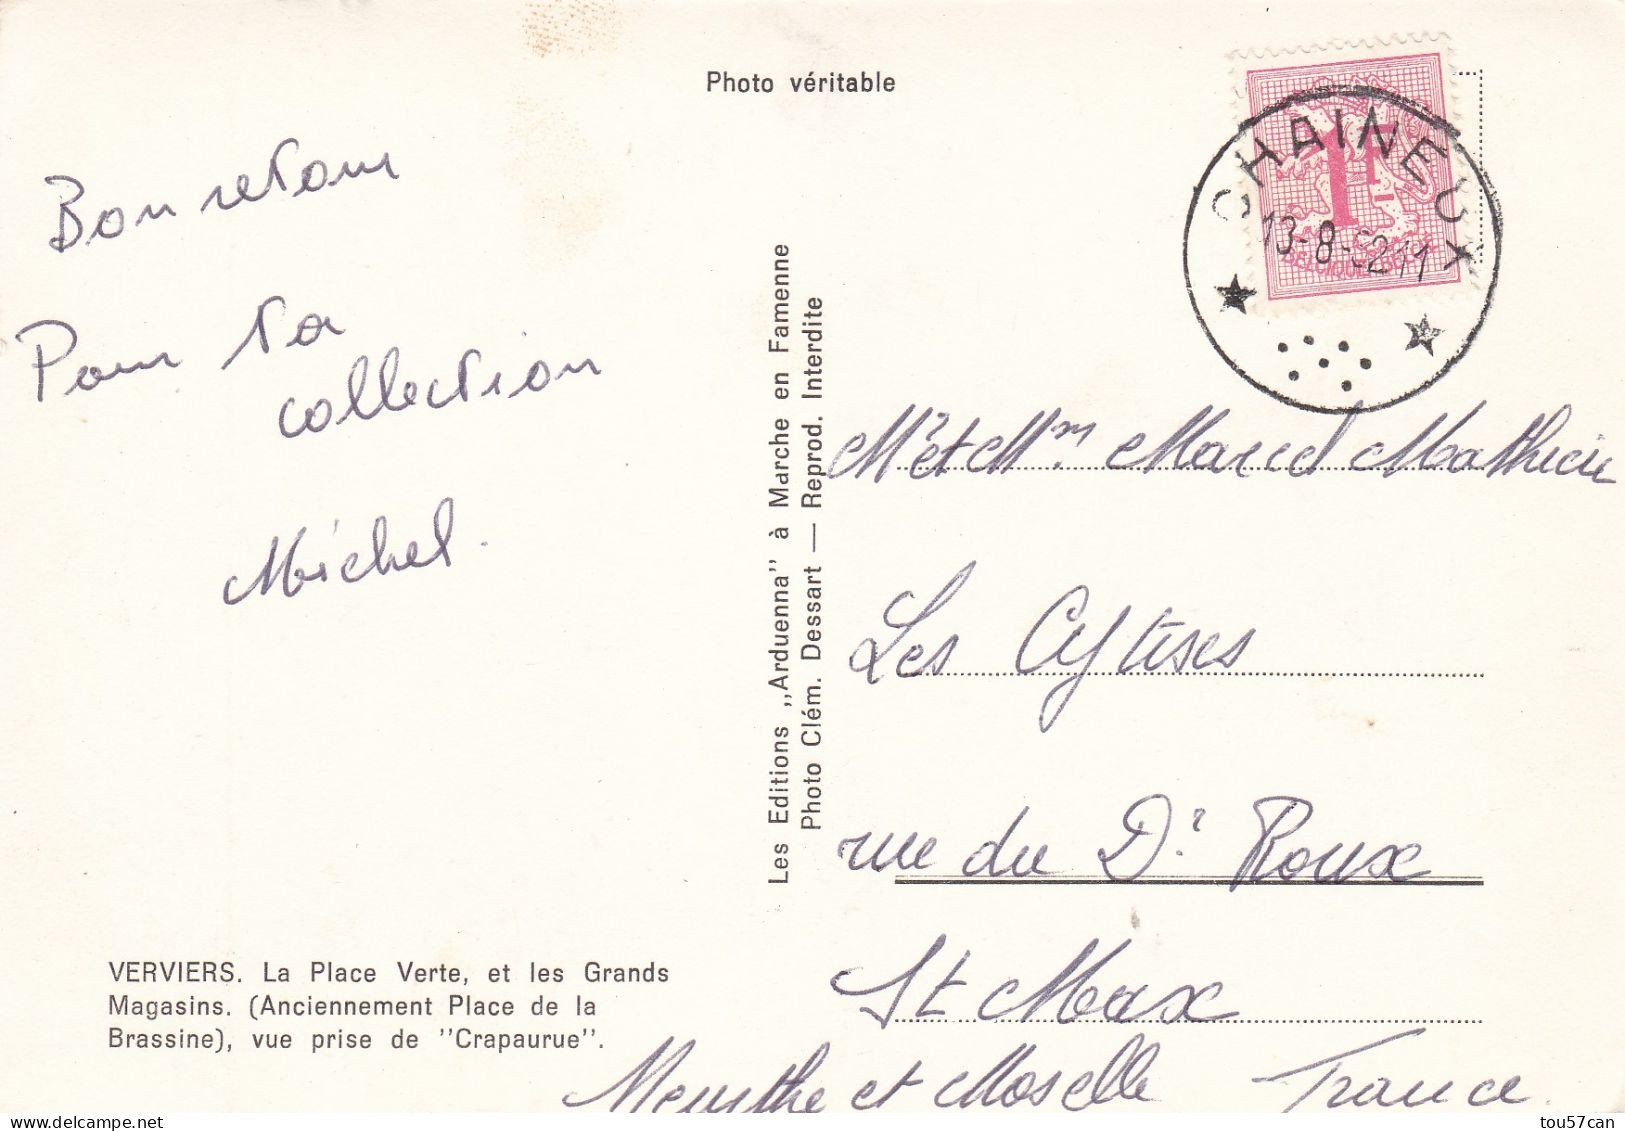 Photo véritable
Bon retour
Pour ta
collection
Michel.
VERVIERS. La Place Verte, et les Grands
Magasins. (Anciennement Place de la
Brassine), vue prise de ''Crapaurue''.
Les Editions ,,Arduenna'' à Marche en Famenne
Photo Clém. Dessart — Reprod. Interdite
CHAINEUX
13-8- 2 11
1F
BELGIQUE-BELGIE
Mr et Mm Marcel Mathieu
Les Cytises
rue du Dr Roux
St Max
Meurthe et Moselle France.
tou57can